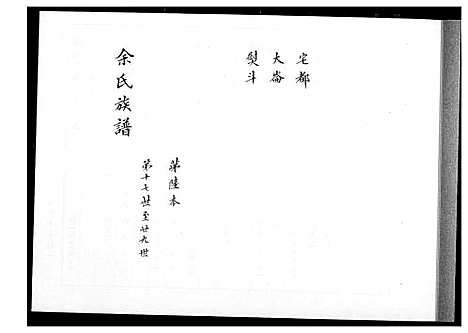 宅都
大崙
熨斗
余氏族譜
第陸本
第十七世至廿九世